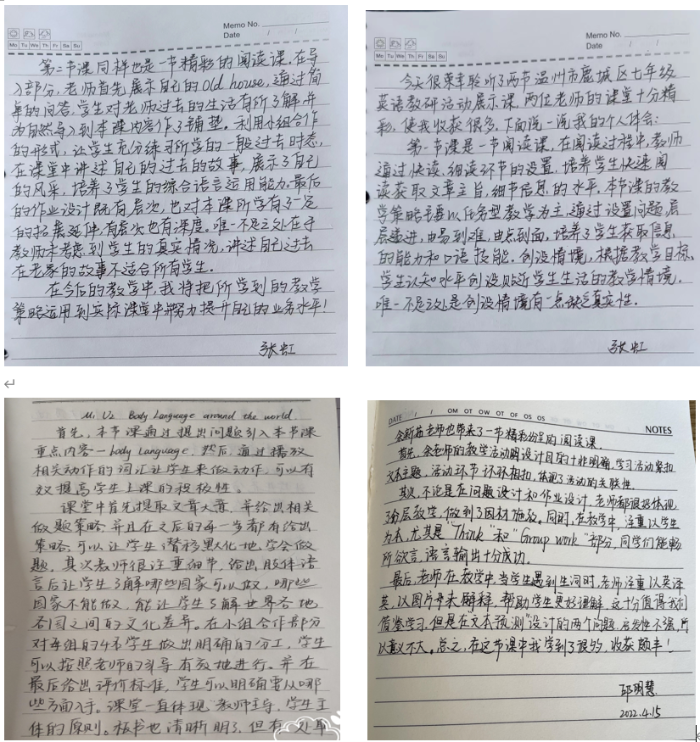 Memo No.
Date / /
Mo Tu We Th Fr Sa Su
第二节课同样也是一节精彩的阅读课,在导
入部分,老师首先展示自己的old house,通过简
单的问答,学生对老师过去的生活有所了解并
为自然导入到本课内容作了铺垫,利用小组合作
的形式,让学生充分练习所学的一般过去时态,
在课堂中讲述自己的过去的故事,展示了自己
的风采,培养了学生的综合语言运用能力。最后
的作业设计既有层次,也对本课所学有了一定
的拓展延伸,有层次也有深度。唯一不足之处在于
教师未考虑到学生的真实情况,讲述自己过去
在老家的故事不适合所有学生。
在今后的教学中,我将把所学到的教学
策略运用到实际课堂中并努力提升自己的业务水平!
张虹
Memo No.
Date / /
Mo Tu We Th Fr Sa Su
今天很荣幸聆听了两节温州市鹿城区七年级
英语教研活动展示课,两位老师的课堂十分精
彩,使我收获很多,下面说一说我的个人体会:
第一节课是一节阅读课,在阅读过程中,教师
通过快读,细读环节的设置,培养学生快速阅
读获取文章主旨,细节信息的水平,本节课的教
学策略主要以任务型教学为主,通过设置问题,层
层递进,由易到难,由点到面,培养了学生获取信息
的能力和口语技能。创设情境,根据教学目标,
学生认知水平创设贴近学生生活的教学情境,
唯一不足之处是创设情境有一点缺乏真实性.
张虹
M1 U2 Body Language around the world
首先,本节课通过提出问题引入本节课
重点内容-body language,然后,通过播放
相关动作的词汇让学生来做动作,可以有
效提高学生上课的积极性。
课堂中首先提取文章大意,并给出相关
做题策略,并且在之后的每一步都有给出
策略,可以让学生潜移默化地学会做
题,其次老师很注重细节,给出肢体语
言后让学生了解哪些国家可以做,哪些
国家不能做,能让学生了解世界各地
各国之间的文化差异。在小组合作部分
对每组的4名学生做出明确的分工,学生
可以按照老师的引导有效地进行。并在
最后给出评价标准,学生可以明确要从哪
些方面入手。课堂一直体现教师主导,学生主
体的原则。板书也清晰明了,但有
DATE / / OM OT OW OT OF OS OS NOTES
老师也带来了一节精彩纷呈的阅读课.
首先,余老师的教学活动明设计目的十非明确,学习活动紧扣
文本主题,活动环节环环相扣,体现了活动的关联性.
其次,不论是在问题设计和作业设计,老师都很好体现
了分层教学,做到了因材施教。同时,在教学中,注重以学生
为本,尤其是"Think"和"Group work"部分,同学们能畅
所欲言,语言输出十分成功.
最后,老师在教学中,当学生遇到生词时,老师注重以英译
英,以图片等来解释,帮助学生更好理解,这十分值得我们
借鉴学习.但是在文本预测设计的两个问题,启发性不强,所
以意义不大。总之,在这节课中我学到了很多,收获颇丰!
邱明慧
2022.4.15